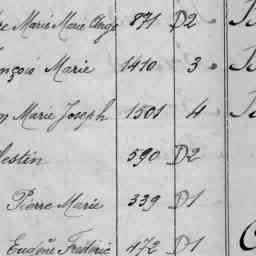 Marie Marie Ange 871 D2
Marie 1410 3
Marie Joseph 1501 4
590 D2
Pierre Marie 339 D1
Eugène Frédéric 472 D1